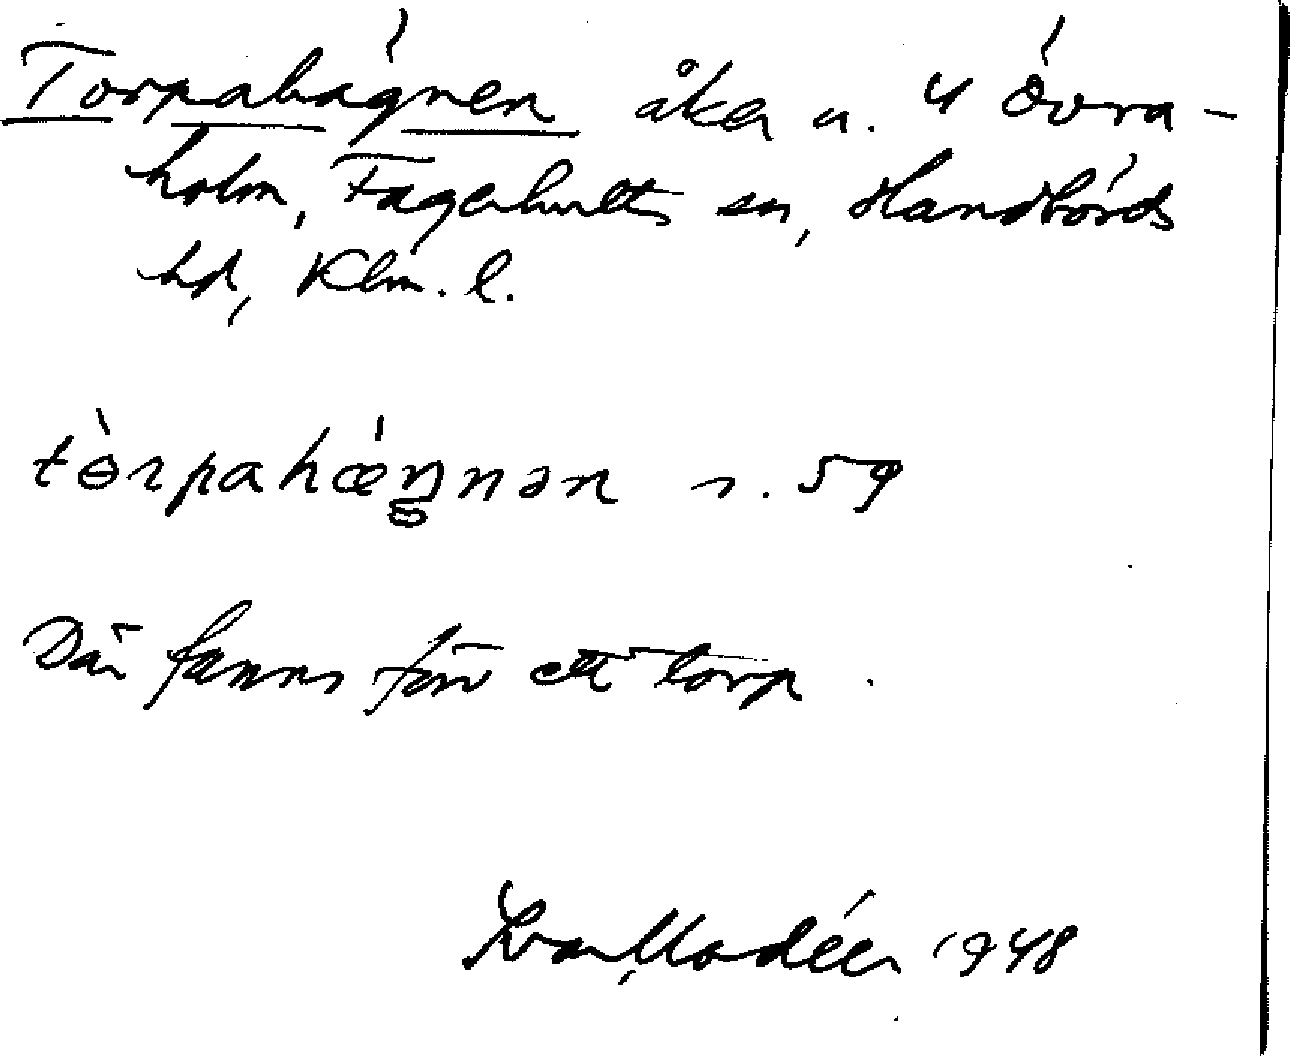 Torpahägnen åker u. 4 Övra-
holm, Fagerhults sn, Handbörds
hd, Klm. l.
tɵrpahæŋnən s. 59
Där fanns förr ett torp.
Ivar Modéer 1948